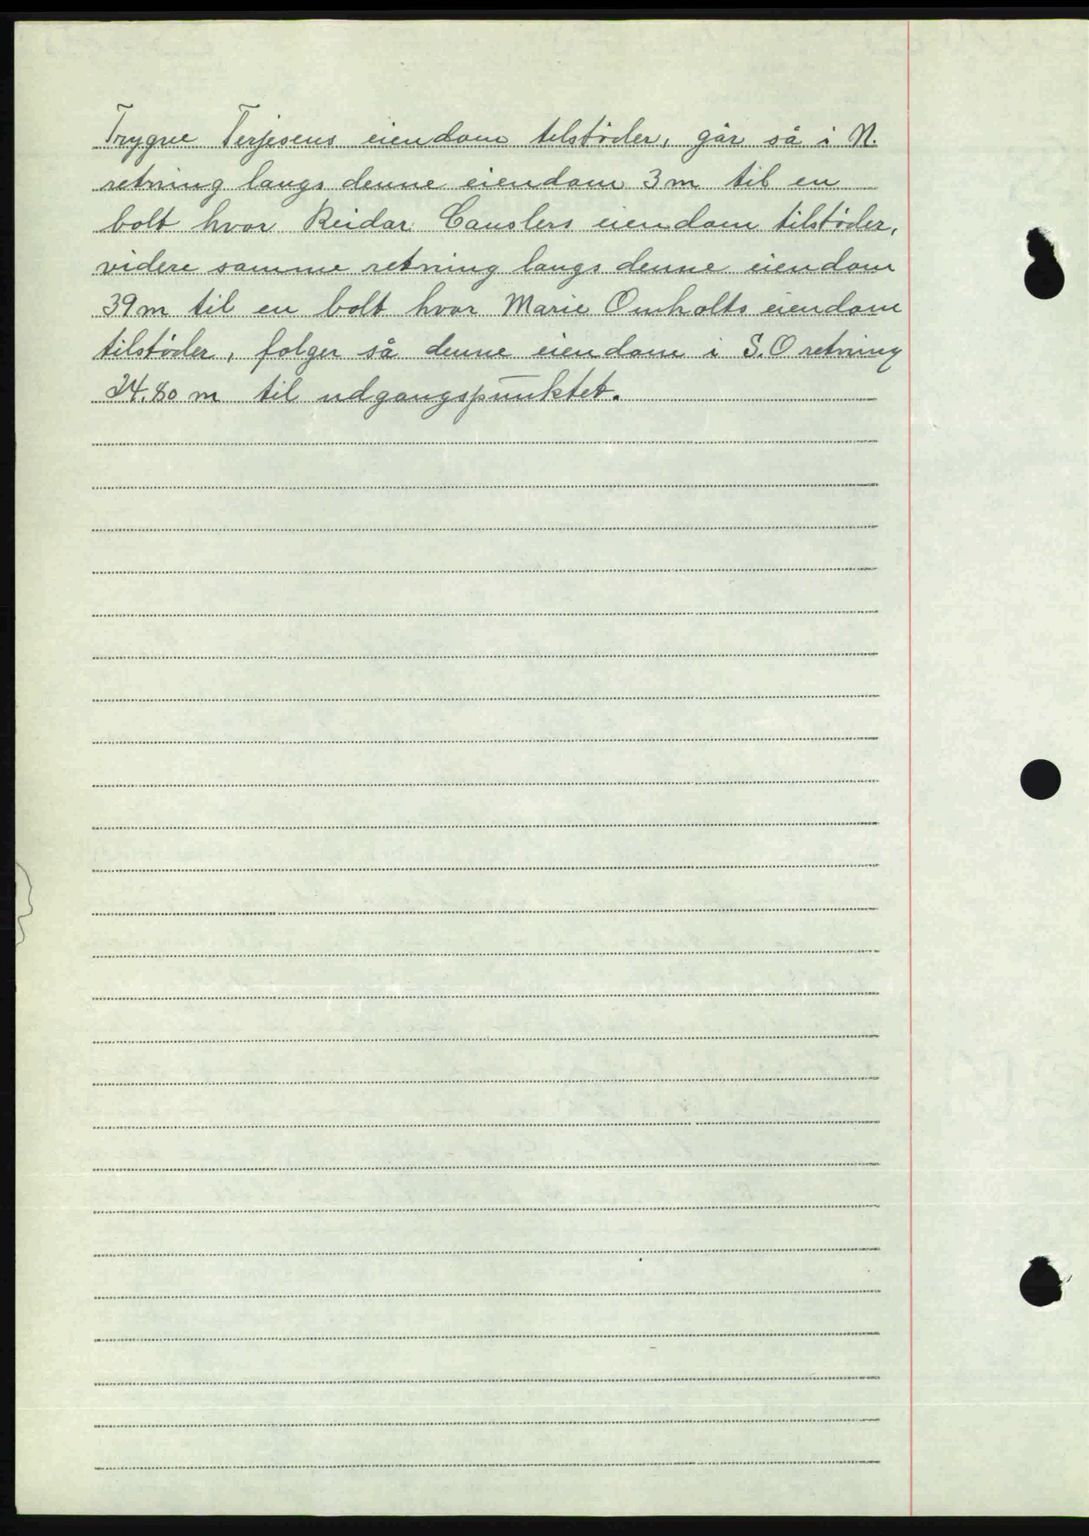 Trygve Terjesens eiendom tilstöder, går så i N.
retning langs denne eiendom 3 m til en
bolt hvor Reidar Canslers eiendom tilstöder,
videre samme retning langs denne eiendom
39 m til en bolt hvor Marie Omholts eiendom
tilstöder, følger så denne eiendom i S.O retning
24.80 m til udgangspunktet.